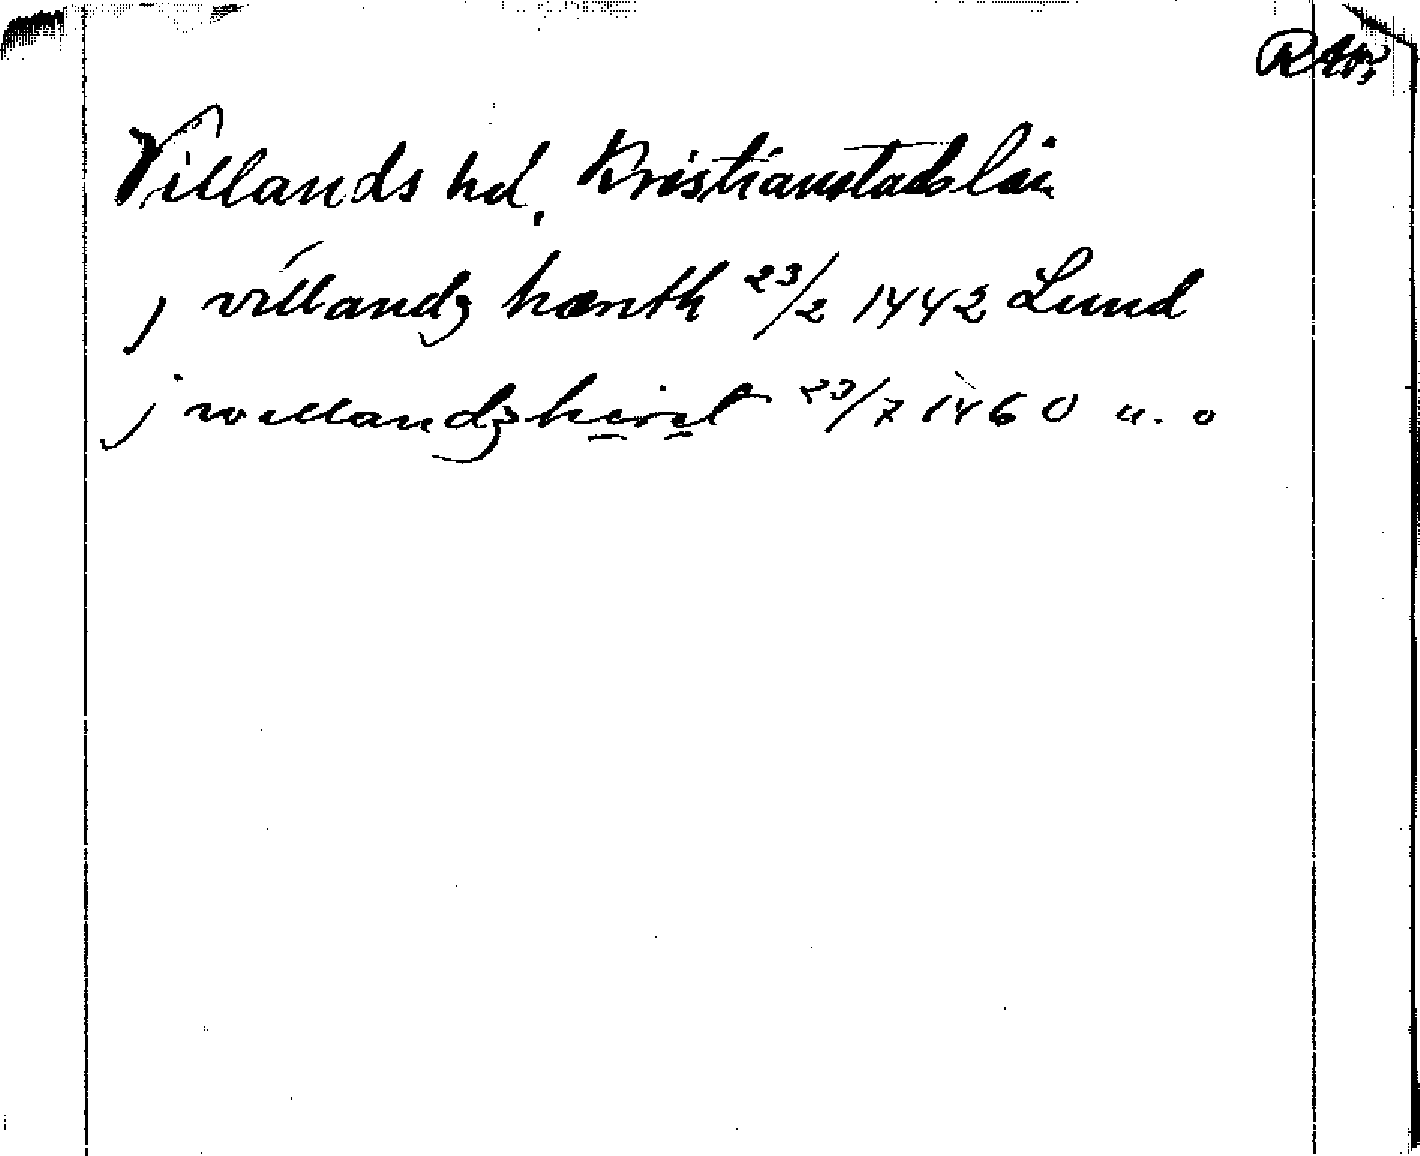 Villands hd, Kristianstads län
j villandz hænth 23/2 1442 Lund
j willandzheret 23/7 1460 u. o